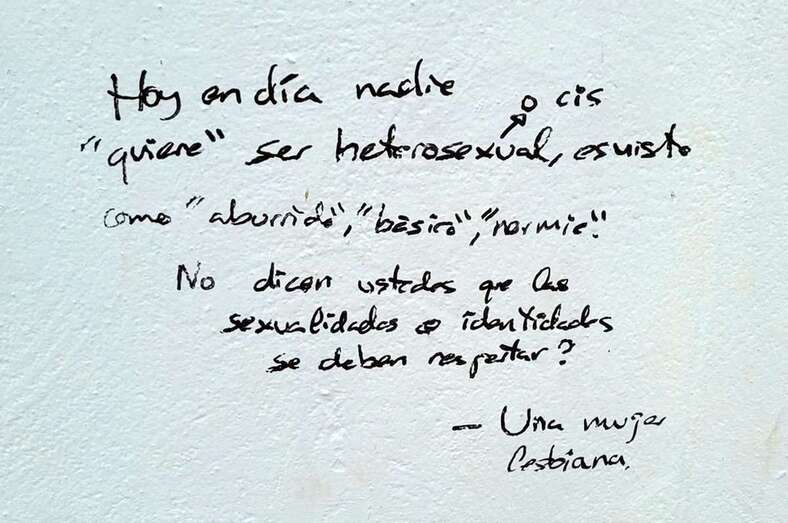 Hoy en día nadie
o cis
"quiere" ser heterosexual, es visto
como "aburrido", "básico", "normie".
No dicen ustedes que las
sexualidades o identidades
se deben respetar?
— Una mujer
lesbiana.